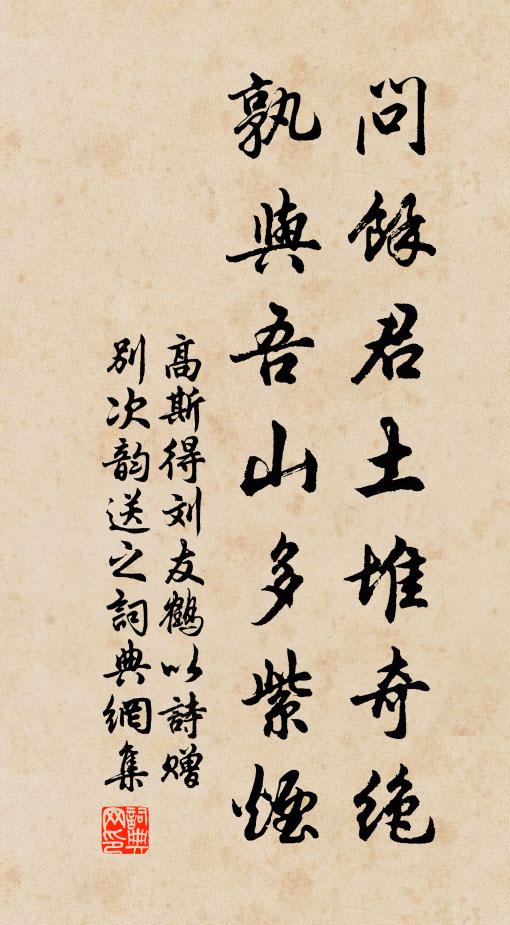 問餘君土堆奇绝
孰與吾山多紫煙
高斯得刘友鶴以詩赠
别次韵送之詞典網集
詞典
网印